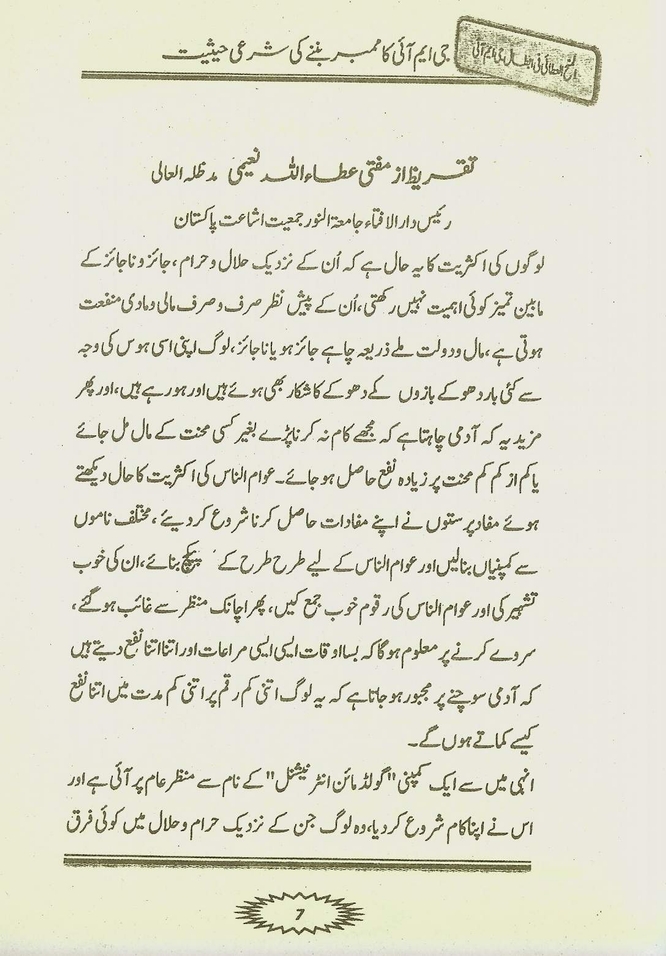 جی ایم آئی کا ممبر بننے کی شرعی حیثیت
تقریظ از مفتی عطاء اللہ نعیمی مدظلہ العالی
رئیس دار الافتاء جامعۃ النور جمعیت اشاعت پاکستان
لوگوں کی اکثریت کا یہ حال ہے کہ اُن کے نزدیک حلال و حرام، جائز و ناجائز کے
مابین تمیز کوئی اہمیت نہیں رکھتی، اُن کے پیش نظر صرف و صرف مالی و مادی منفعت
ہوتی ہے، مال و دولت ملے ذریعہ چاہے جائز ہو یا ناجائز، لوگ اپنی اسی ہوس کی وجہ
سے کئی بار دھوکے بازوں کے دھوکے کا شکار بھی ہوئے ہیں اور ہو رہے ہیں، اور پھر
مزید یہ کہ آدمی چاہتا ہے کہ مجھے کام نہ کرنا پڑے بغیر کسی محنت کے مال مل جائے
یا کم از کم کم محنت پر زیادہ نفع حاصل ہو جائے۔ عوام الناس کی اکثریت کا حال دیکھتے
ہوئے مفاد پرستوں نے اپنے مفادات حاصل کرنا شروع کر دیئے، مختلف ناموں
سے کمپنیاں بنالیں اور عوام الناس کے لیے طرح طرح کے پیکج بنائے، ان کی خوب
تشہیر کی اور عوام الناس کی رقوم خوب جمع کیں، پھر اچانک منظر سے غائب ہو گئے،
سروے کرنے پر معلوم ہوگا کہ بسا اوقات ایسی ایسی مراعات اور اتنا اتنا نفع دیتے ہیں
کہ آدمی سوچنے پر مجبور ہو جاتا ہے کہ یہ لوگ اتنی کم رقم پر اتنی کم مدت میں اتنا نفع
کیسے کماتے ہوں گے۔
انہی میں سے ایک کمپنی "گولڈ مائن انٹر نیشنل" کے نام سے منظر عام پر آئی ہے اور
اس نے اپنا کام شروع کر دیا، وہ لوگ جن کے نزدیک حرام و حلال میں کوئی فرق
7